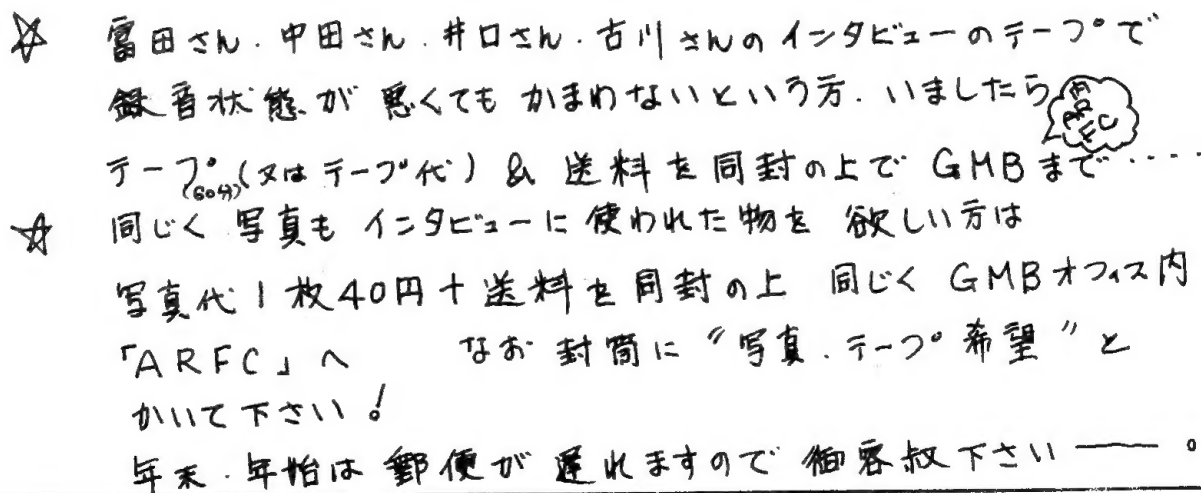 ☆ 富田さん.中田さん.井口さん.古川さんのインタビューのテープで
録音状態が悪くてもかまわないという方.いましたら
内 ARFC
テープ(60分)(又はテープ代)&送料を同封の上でGMBまで‥‥
☆ 同じく写真もインタビューに使われた物を欲しい方は
写真代1枚40円+送料を同封の上 同じくGMBオフィス内
「ARFC」へ なお封筒に〝写真.テープ希望〞と
かいて下さい!
年末.年始は郵便が遅れますので御容赦下さい——。